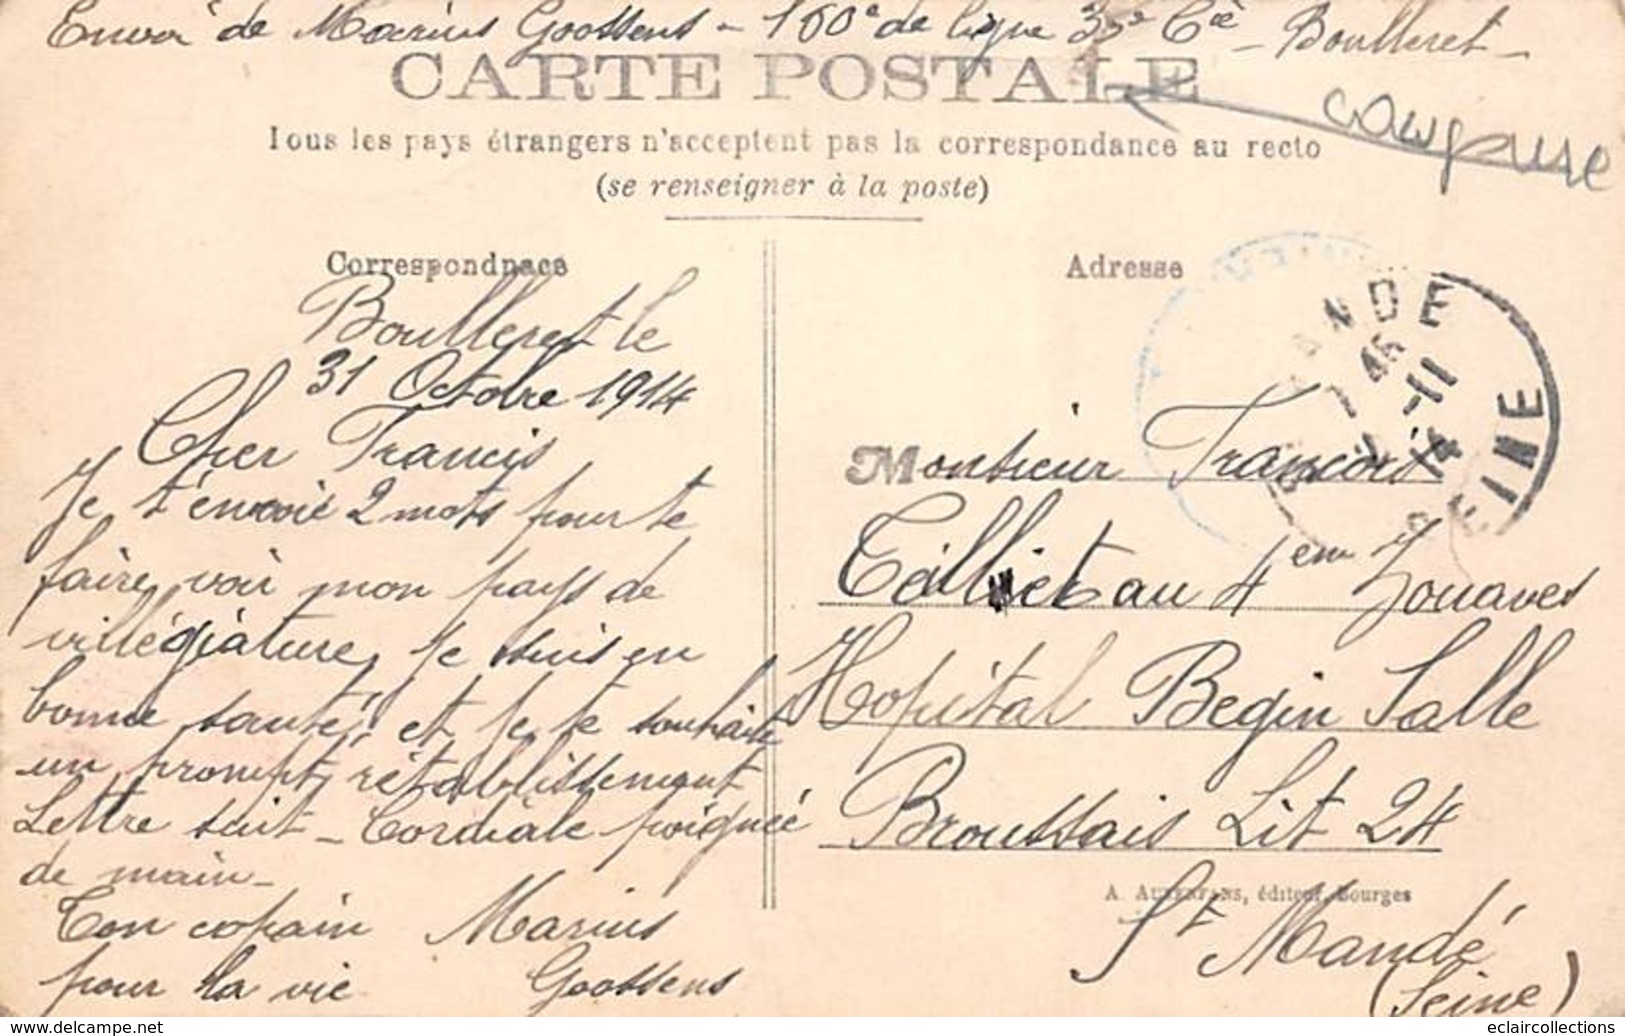 Envoi de Marius Goossens - 160e de ligne 35e Cie - Boulleret -
CARTE POSTALE
Tous les pays étrangers n'acceptent pas la correspondance au recto
(se renseigner à la poste)
Correspondnace
Boulleret le
31 Octobre 1914
Cher Francis
Je t'envoie 2 mots pour te
faire voir mon pays de
villégiature, je suis en
bonne santé, et je te souhaite
un prompt rétablissement
Lettre suit - Cordiale poignée
de main -
Ton copain Marius
pour la vie Goossens
Adresse
ANDE
45
-11
14
SEINE
Monsieur François
Tailliet au 4em Zouaves
Hopital Begin Salle
Broussais Lit 24
A. AUXENFANS, éditeur, Bourges
St Mandé
(Seine)
eclaircollections